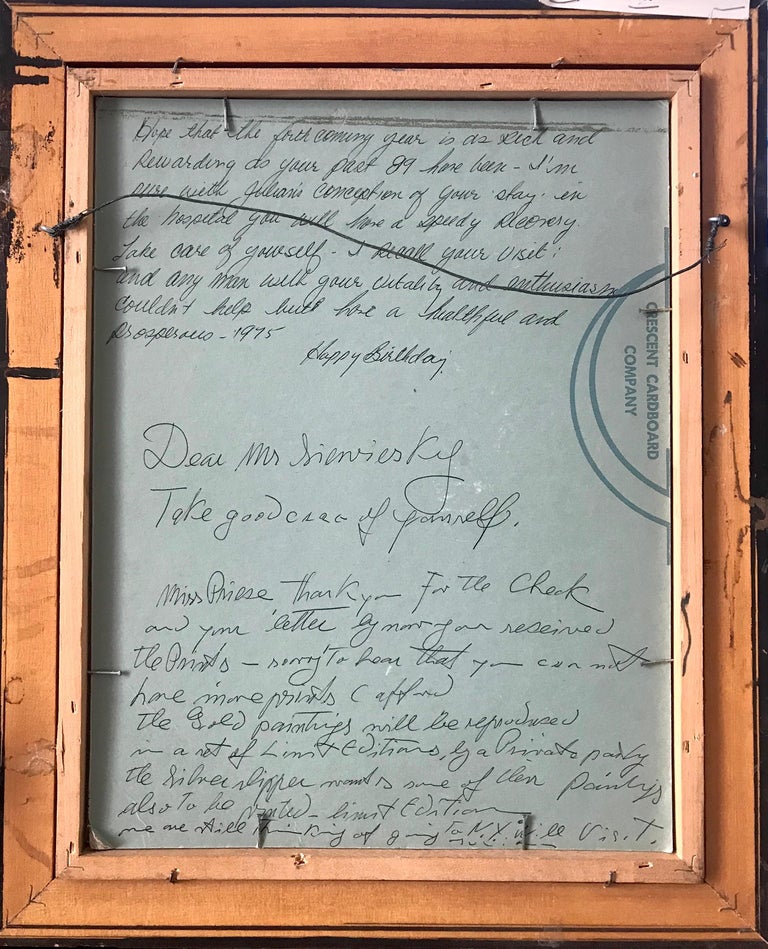 Hope that the forthcoming year is as Rich and
Rewarding as your past 89 have been - I'm
sure with Julian's conception of your stay in
the hospital you will have a speedy Recovery.
Take care of yourself - I Recall your visit;
and any man with your vitality and enthusiasm
couldn't help but have a healthful and
prosperous - 1975
Happy Birthday.
CRESCENT CARDBOARD
COMPANY
Dear Mr
Take good of yourself.
Miss thank you For the Check
and your letter by now you received
the Prints - sorry to hear that you can not
have more prints
the Gold paintings will be reproduced
in a set of Limit Editions, by a Private party
the Silver slipper wants some of their Paintings
also to be printed - limit Edition
we are still thinking of going to N.Y. will Visit.